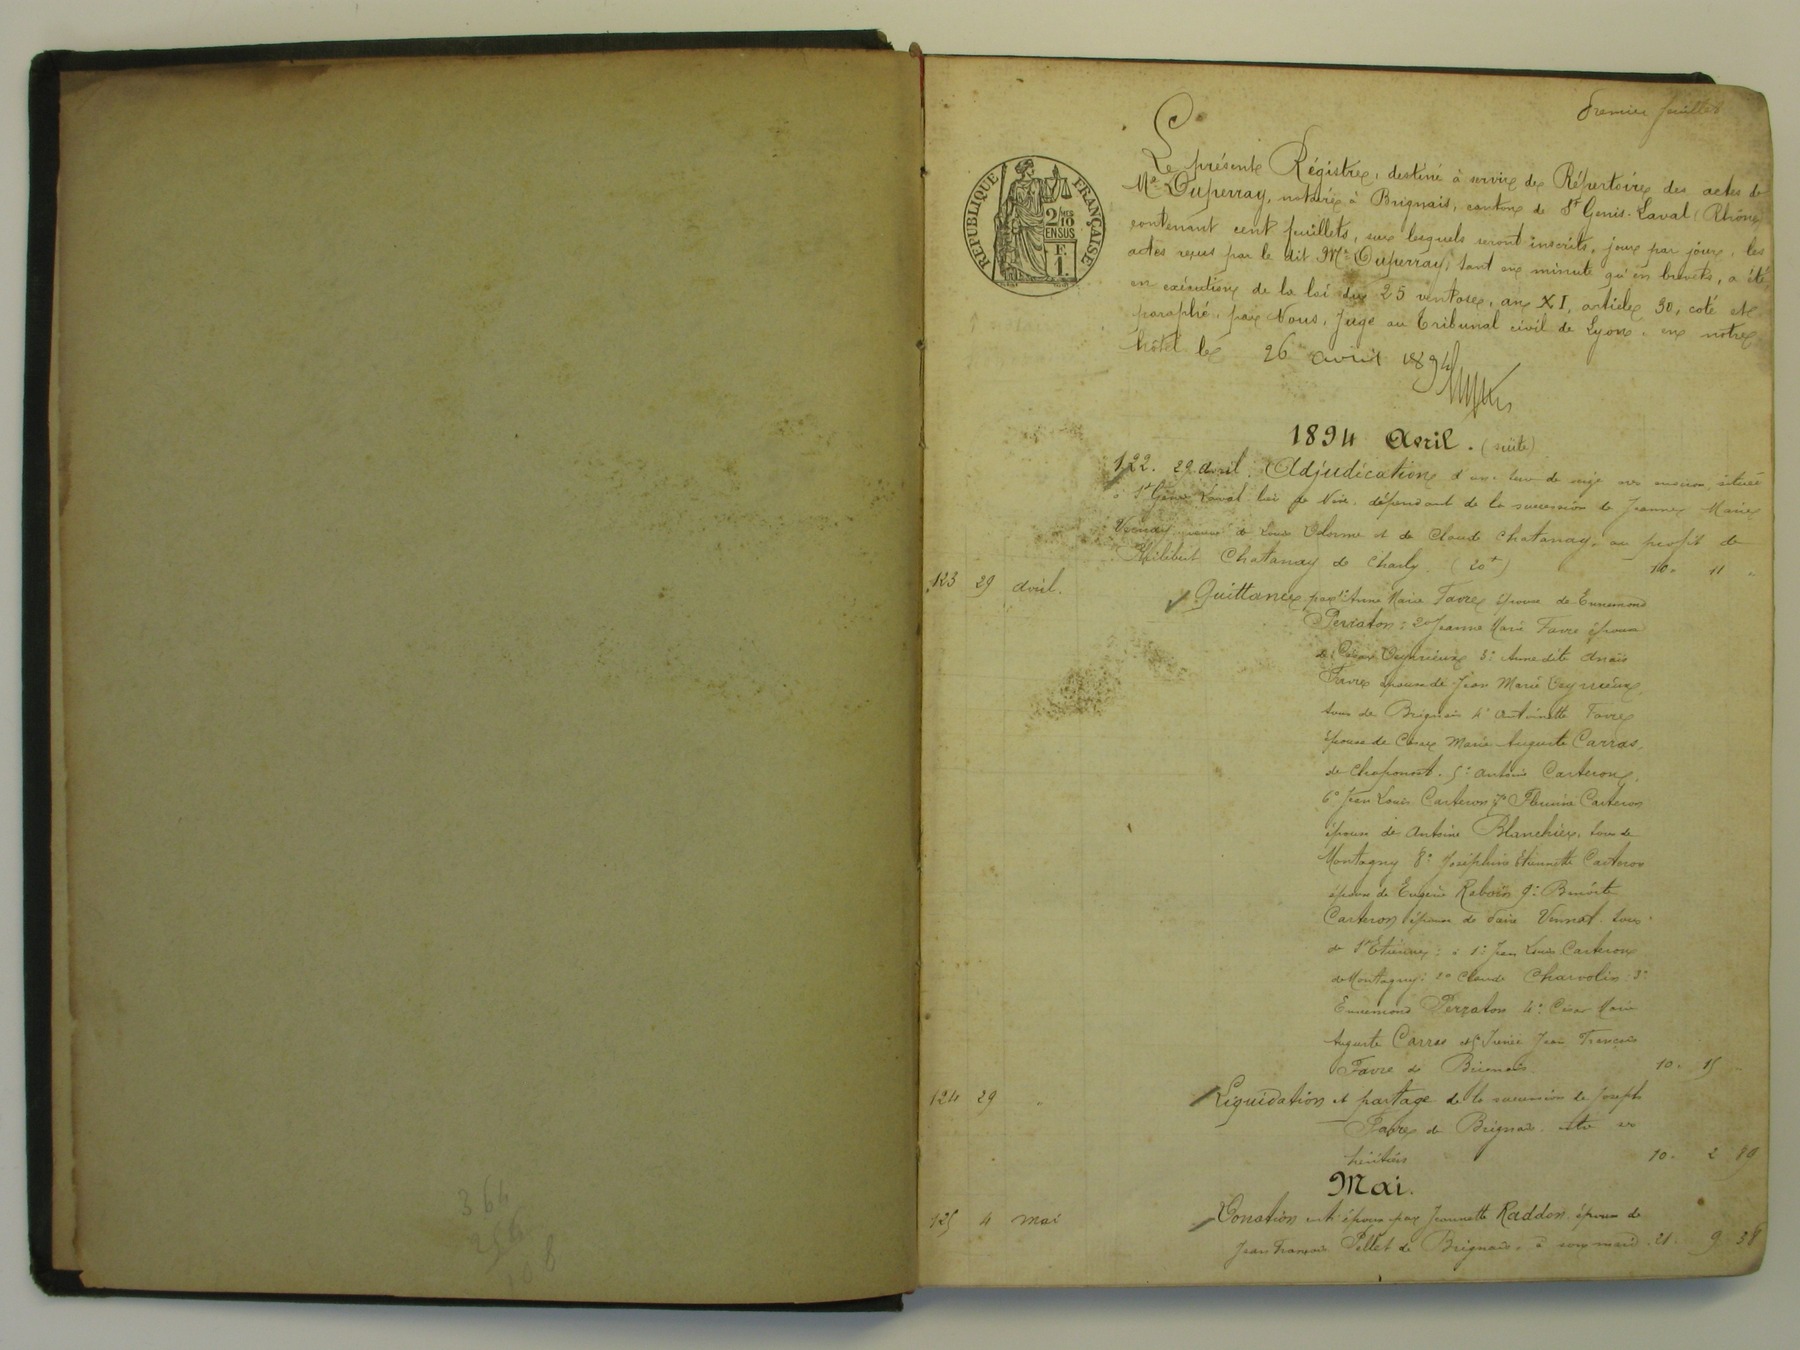 Premier feuillet
RÉPUBLIQUE FRANÇAISE
2/10
EN SUS
F.
1.
Le présent Régistre, destiné à servir de Répertoire des actes de
Me Duperray, notaire à Brignais, canton de St Genis-Laval (Rhône)
contenant cent feuillets, sur lesquels seront inscrits, jour par jour, les
actes reçus par le dit Me Duperray, tant en minute qu'en brevets, a été,
en exécution de la loi du 25 ventose, an XI, article 30, coté et
paraphé, par Nous, Juge au Tribunal civil de Lyon, en notre
hôtel le 26 avril 1894
1894 Avril. (suite)
122. 29 avril. Adjudication d'un située
à St Genis Laval lieu de dépendant de la succession de Jeanne Marie
veuve de Louis Delorme et de Claude Chatanay, au profit de
Philibert Chatanay de Charly. 10. 11 "
123 29 avril. Quittance par 1° Anne Marie Favre épouse de Ennemond
Perraton; 2° Jeanne Marie Favre épouse
de César 3° Anne dite Anaïs
Favre épouse de Jean Marie
tous de Brignais 4° Antoinette Favre
épouse de César Marie Auguste Carras,
de Chaponost. 5° Antoine Carteron,
6° Jean Louis Carteron 7° Carteron
épouse de Antoine Blanchier, tous de
Montagny 8° Joséphine Etiennette Carteron
épouse de Eugène 9° Benoîte
Carteron épouse de tous
de St Etienne; à 1° Jean Louis Carteron
de Montagny; 2° Claude Charvolin; 3°
Ennemond Perraton 4° César Marie
Auguste Carras et 5° Jean François
Favre de Brignais. 10. 15
124 29 " Liquidation et partage de la succession de Joseph
Favre de Brignais entre ses
héritiers 10. 2 89
Mai.
125 4 mai Donation entre époux par Jeannette Raddon, épouse de
Jean François Pellet de Brignais, à son mari. 21. 9 38
364
256
108